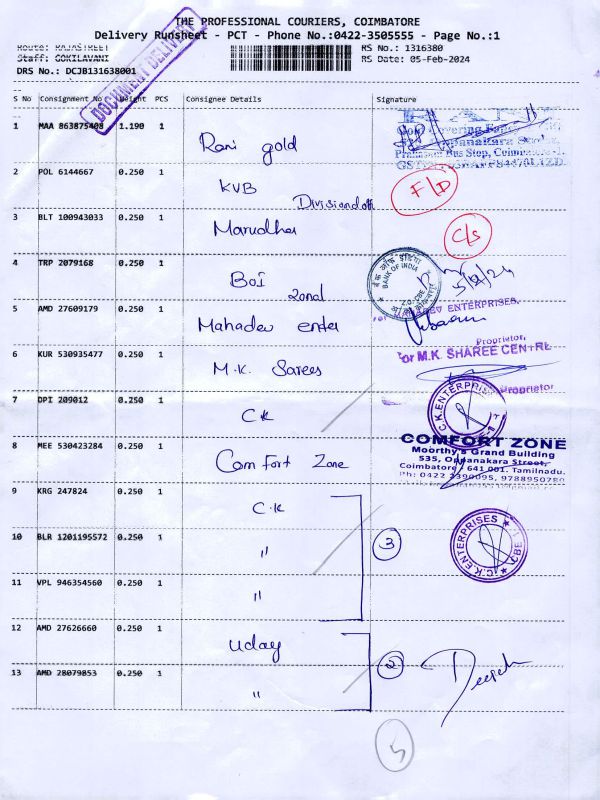 THE PROFESSIONAL COURIERS, COIMBATORE
Delivery Runsheet - PCT - Phone No.:0422-3505555 - Page No.:1
Route: RAJASTREET
RS No.: 1316380
Staff: GOKILAVANI
RS Date: 05-Feb-2024
DRS No.: DCJB131638001
DOCUMENT DELIVERY
S No Consignment No Weight PCS Consignee Details Signature
1 MAA 863875408 1.190 1 Rani gold
2 POL 6144667 0.250 1 KVB Divisional off F/D
3 BLT 100943033 0.250 1 Marudhar C/S
4 TRP 2079168 0.250 1 BoI zonal
BANK OF INDIA
5 AMD 27609179 0.250 1 Mahadev enter
ENTERPRISES.
Proprietor,
6 KUR 530935477 0.250 1 M.K. Sarees
For M.K. SHAREE CENTRE
Proprietor
7 DPI 209012 0.250 1 CK
C.K.ENTERPRISES
8 MEE 530423284 0.250 1 Comfort Zone
COMFORT ZONE
Moorthy's Grand Building
535, Oppanakara Street,
Coimbatore - 641 001. Tamilnadu.
Ph: 0422 2390095, 9788950780
9 KRG 247824 0.250 1 C.K
10 BLR 1201195572 0.250 1 " 3
C.K.ENTERPRISES
11 VPL 946354560 0.250 1 "
12 AMD 27626660 0.250 1 Uday 2
13 AMD 28079853 0.250 1 "